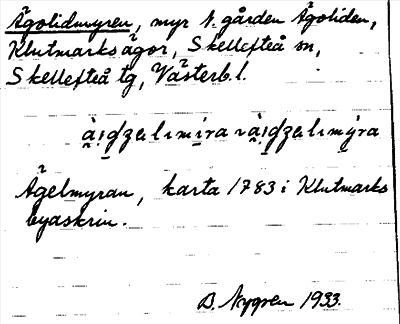 Ägolidmyren, myr N. gården Ägoliden,
Klutmarks ägor, Skellefteå sn,
Skellefteå tg, Västerb. l.
Ägelmyran, karta 1783 i Klutmarks
byaskrin.
B. Nygren 1933.